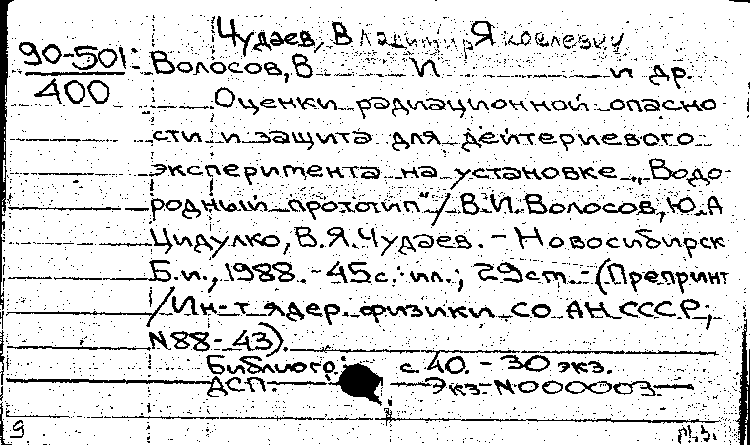 Чудаев, Владимир Яковлевич
90-501: Волосов, В И и др.
400
Оценки радиационной опасно
сти и защита для дейтериевого
эксперимента на установке „Водо-
родный прототип"/ В.И. Волосов, Ю.А
Цидулко, В.Я. Чудаев. - Новосибирск
Б.и., 1988. - 45 с.: ил.; 29 см. - (Препринт
/Ин-т ядер. физики СО АН СССР;
N 88-43).
Библиогр.: с 40. - 30 экз.
ДСП. Экз. N 000003.
9